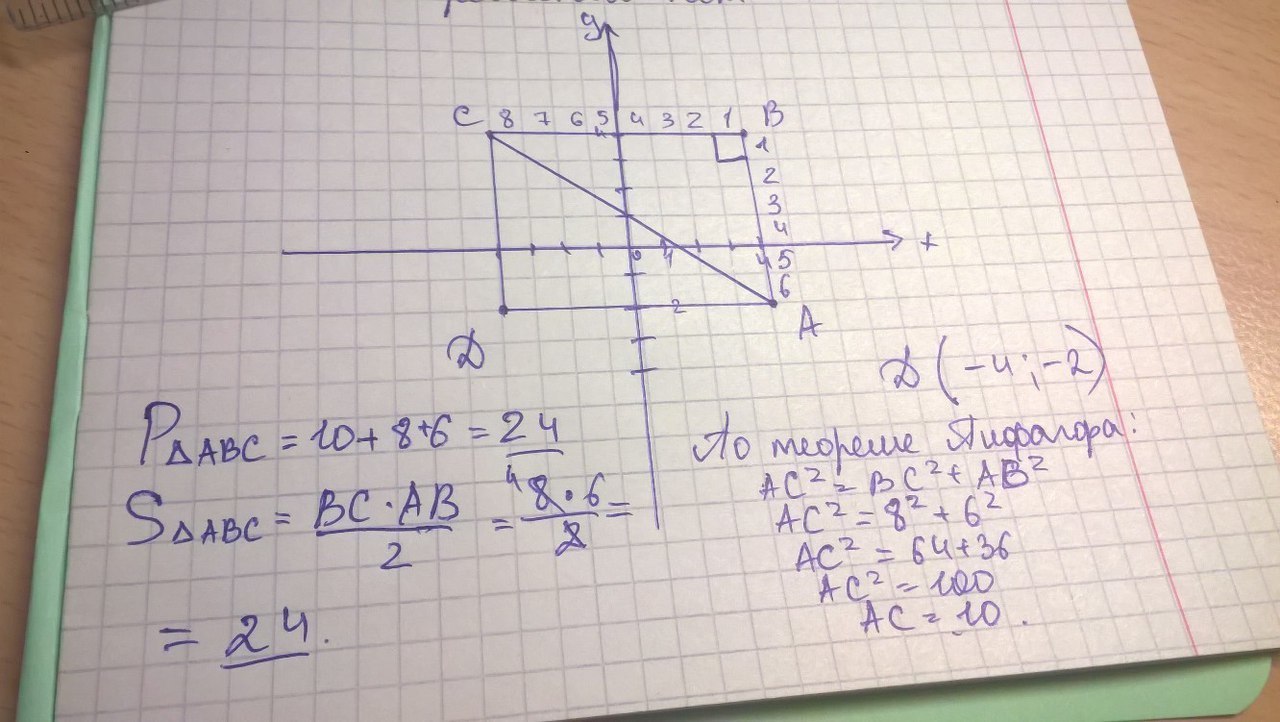 y
C 8 7 6 5 4 3 2 1 B
4 1
2
3
4
x
0 1 4 5
6
2
A
D
D (-4; -2)
P△ABC = 10 + 8 + 6 = 24
S△ABC = BC · AB / 2 = 8 · 6 / 2 =
4
= 24.
По теореме Пифагора:
AC² = BC² + AB²
AC² = 8² + 6²
AC² = 64 + 36
AC² = 100
AC = 10.